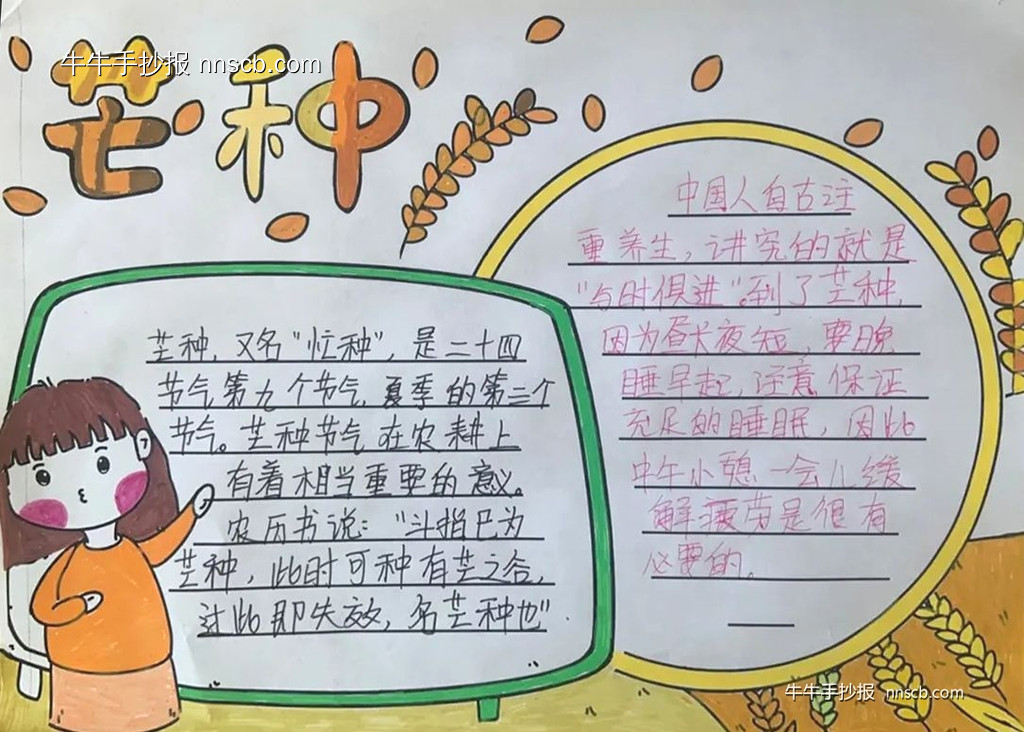 牛牛手抄报 nnscb.com
芒种
芒种，又名"忙种"，是二十四
节气第九个节气，夏季的第三个
节气。芒种节气在农耕上
有着相当重要的意义。
农历书说："斗指巳为
芒种，此时可种有芒之谷，
过此即失效，名芒种也"
中国人自古注
重养生，讲究的就是
"与时俱进"。到了芒种，
因为昼长夜短，要晚
睡早起，注意保证
充足的睡眠，因此
中午小憩一会儿缓
解疲劳是很有
必要的。
牛牛手抄报 nnscb.com